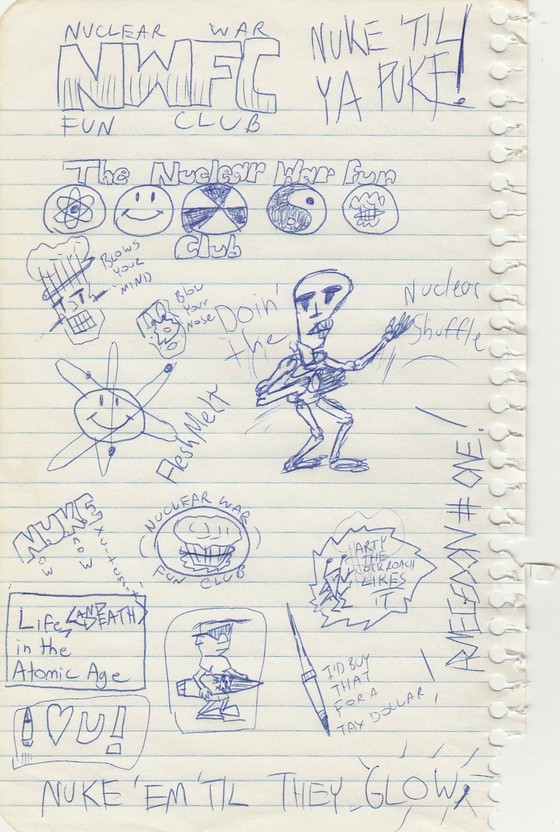 NUCLEAR WAR
NWFC
FUN CLUB
NUKE 'TIL
YA PUKE!
The Nuclear War Fun
Club
BLOWS
YOUR
MIND
Blow
Your
Nose
Doin'
the
Nuclear
Shuffle
FleshMelt
NUKE
NOW
NUCLEAR WAR
FUN CLUB
ARTY
THE
COCKROACH
LIKES
IT
ARMEGEDDON # ONE!
Life AND DEATH
in the
Atomic Age
I'D BUY
THAT
FOR A
TAX DOLLAR!
U!
NUKE 'EM 'TIL THEY GLOW!